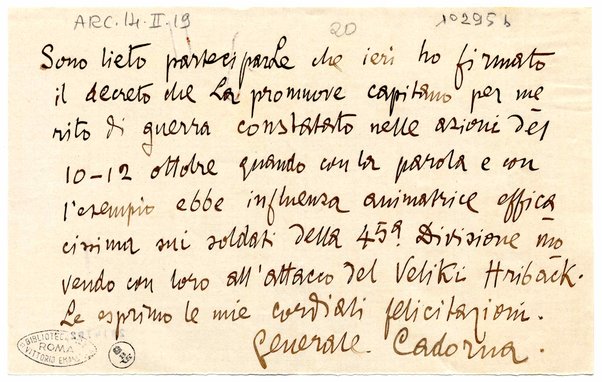 ARC. 14. II. 19
20
102956
Sono lieto parteciparLe che ieri ho firmato
il decreto che La promuove capitano per me
rito di guerra constatato nelle azioni del
10-12 ottobre quando con la parola e con
l'esempio ebbe influenza animatrice effica
cissima sui soldati della 45ª Divisione mo
vendo con loro all'attacco del Veliki Hriback.
Le esprimo le mie cordiali felicitazioni.
Generale Cadorna.
BIBLIOTECA
ROMA
VITTORIO EMAN